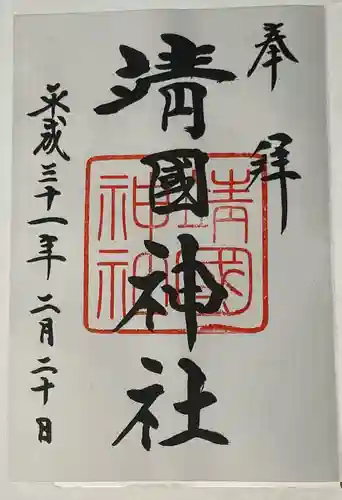 奉拝
靖國神社
靖國神社
平成三十一年二月二十日